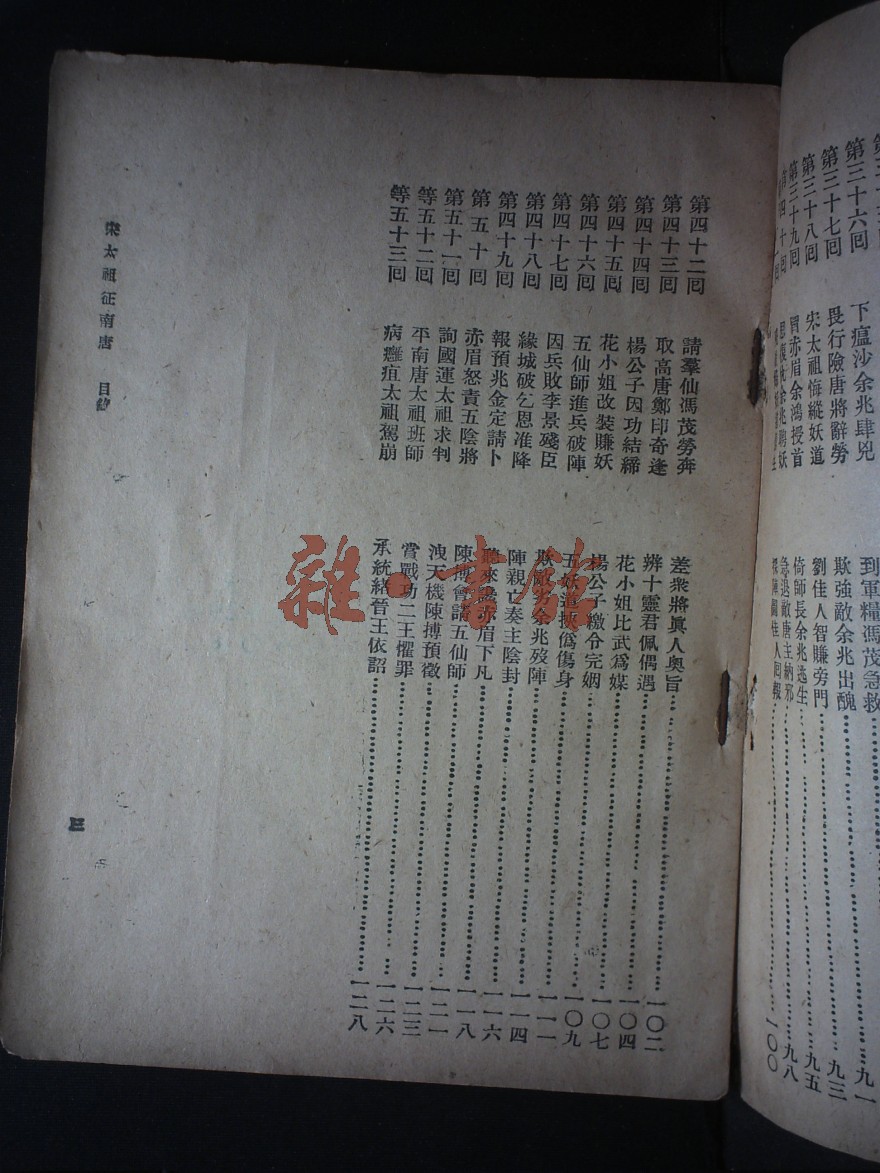 第三十六回 下瘟沙余兆肆兇 到軍糧馮茂急救 九一
第三十七回 畏行險唐將辭勞 欺強敵余兆出醜 九三
第三十八回 宋太祖悔縱妖道 劉佳人智賺旁門 九五
第三十九回 赤眉余鴻授首 倚師長余兆逃生 九八
第四十回 余兆聘妖 急退敵唐主納邪 一〇〇
第四十二回 請羣仙馮茂勞奔 差衆將眞人奧旨 一〇二
第四十三回 取高唐鄭印奇逢 辨十靈君佩偶遇 一〇四
第四十四回 楊公子因功結締 花小姐比武爲媒 一〇七
第四十五回 花小姐改裝賺妖 楊公子繳令完姻 一〇九
第四十六回 五仙師進兵破陣 五妖道挾僞傷身 一一一
第四十七回 因兵敗李景殘臣 欺余兆歿陣 一一四
第四十八回 緣城破乞恩准降 陣親亡奏主陰封 一一六
第四十九回 報預兆金定請卜 聽來赤眉下凡 一一八
第五十回 赤眉怒責五陰將 陳摶會議五仙師 一二一
第五十一回 詢國運太祖求判 洩天機陳摶預徵 一二三
等五十二回 平南唐太祖班師 賞戰功二王懼罪 一二六
等五十三回 病癰疽太祖駕崩 承統緒晉王依詔 一二八
宋太祖征南唐 目錄
三
雜·書館